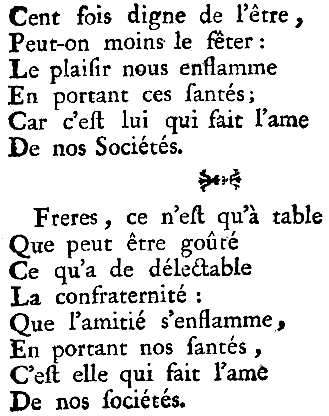 Cent fois digne de l'être,
Peut-on moins le fêter :
Le plaiſir nous enflamme
En portant ces ſantés;
Car c'eſt lui qui fait l'ame
De nos Sociétés.
Freres, ce n'eſt qu'à table
Que peut être goûté
Ce qu'a de délectable
La confraternité :
Que l'amitié s'enflamme,
En portant nos ſantés,
C'eſt elle qui fait l'ame
De nos ſociétés.